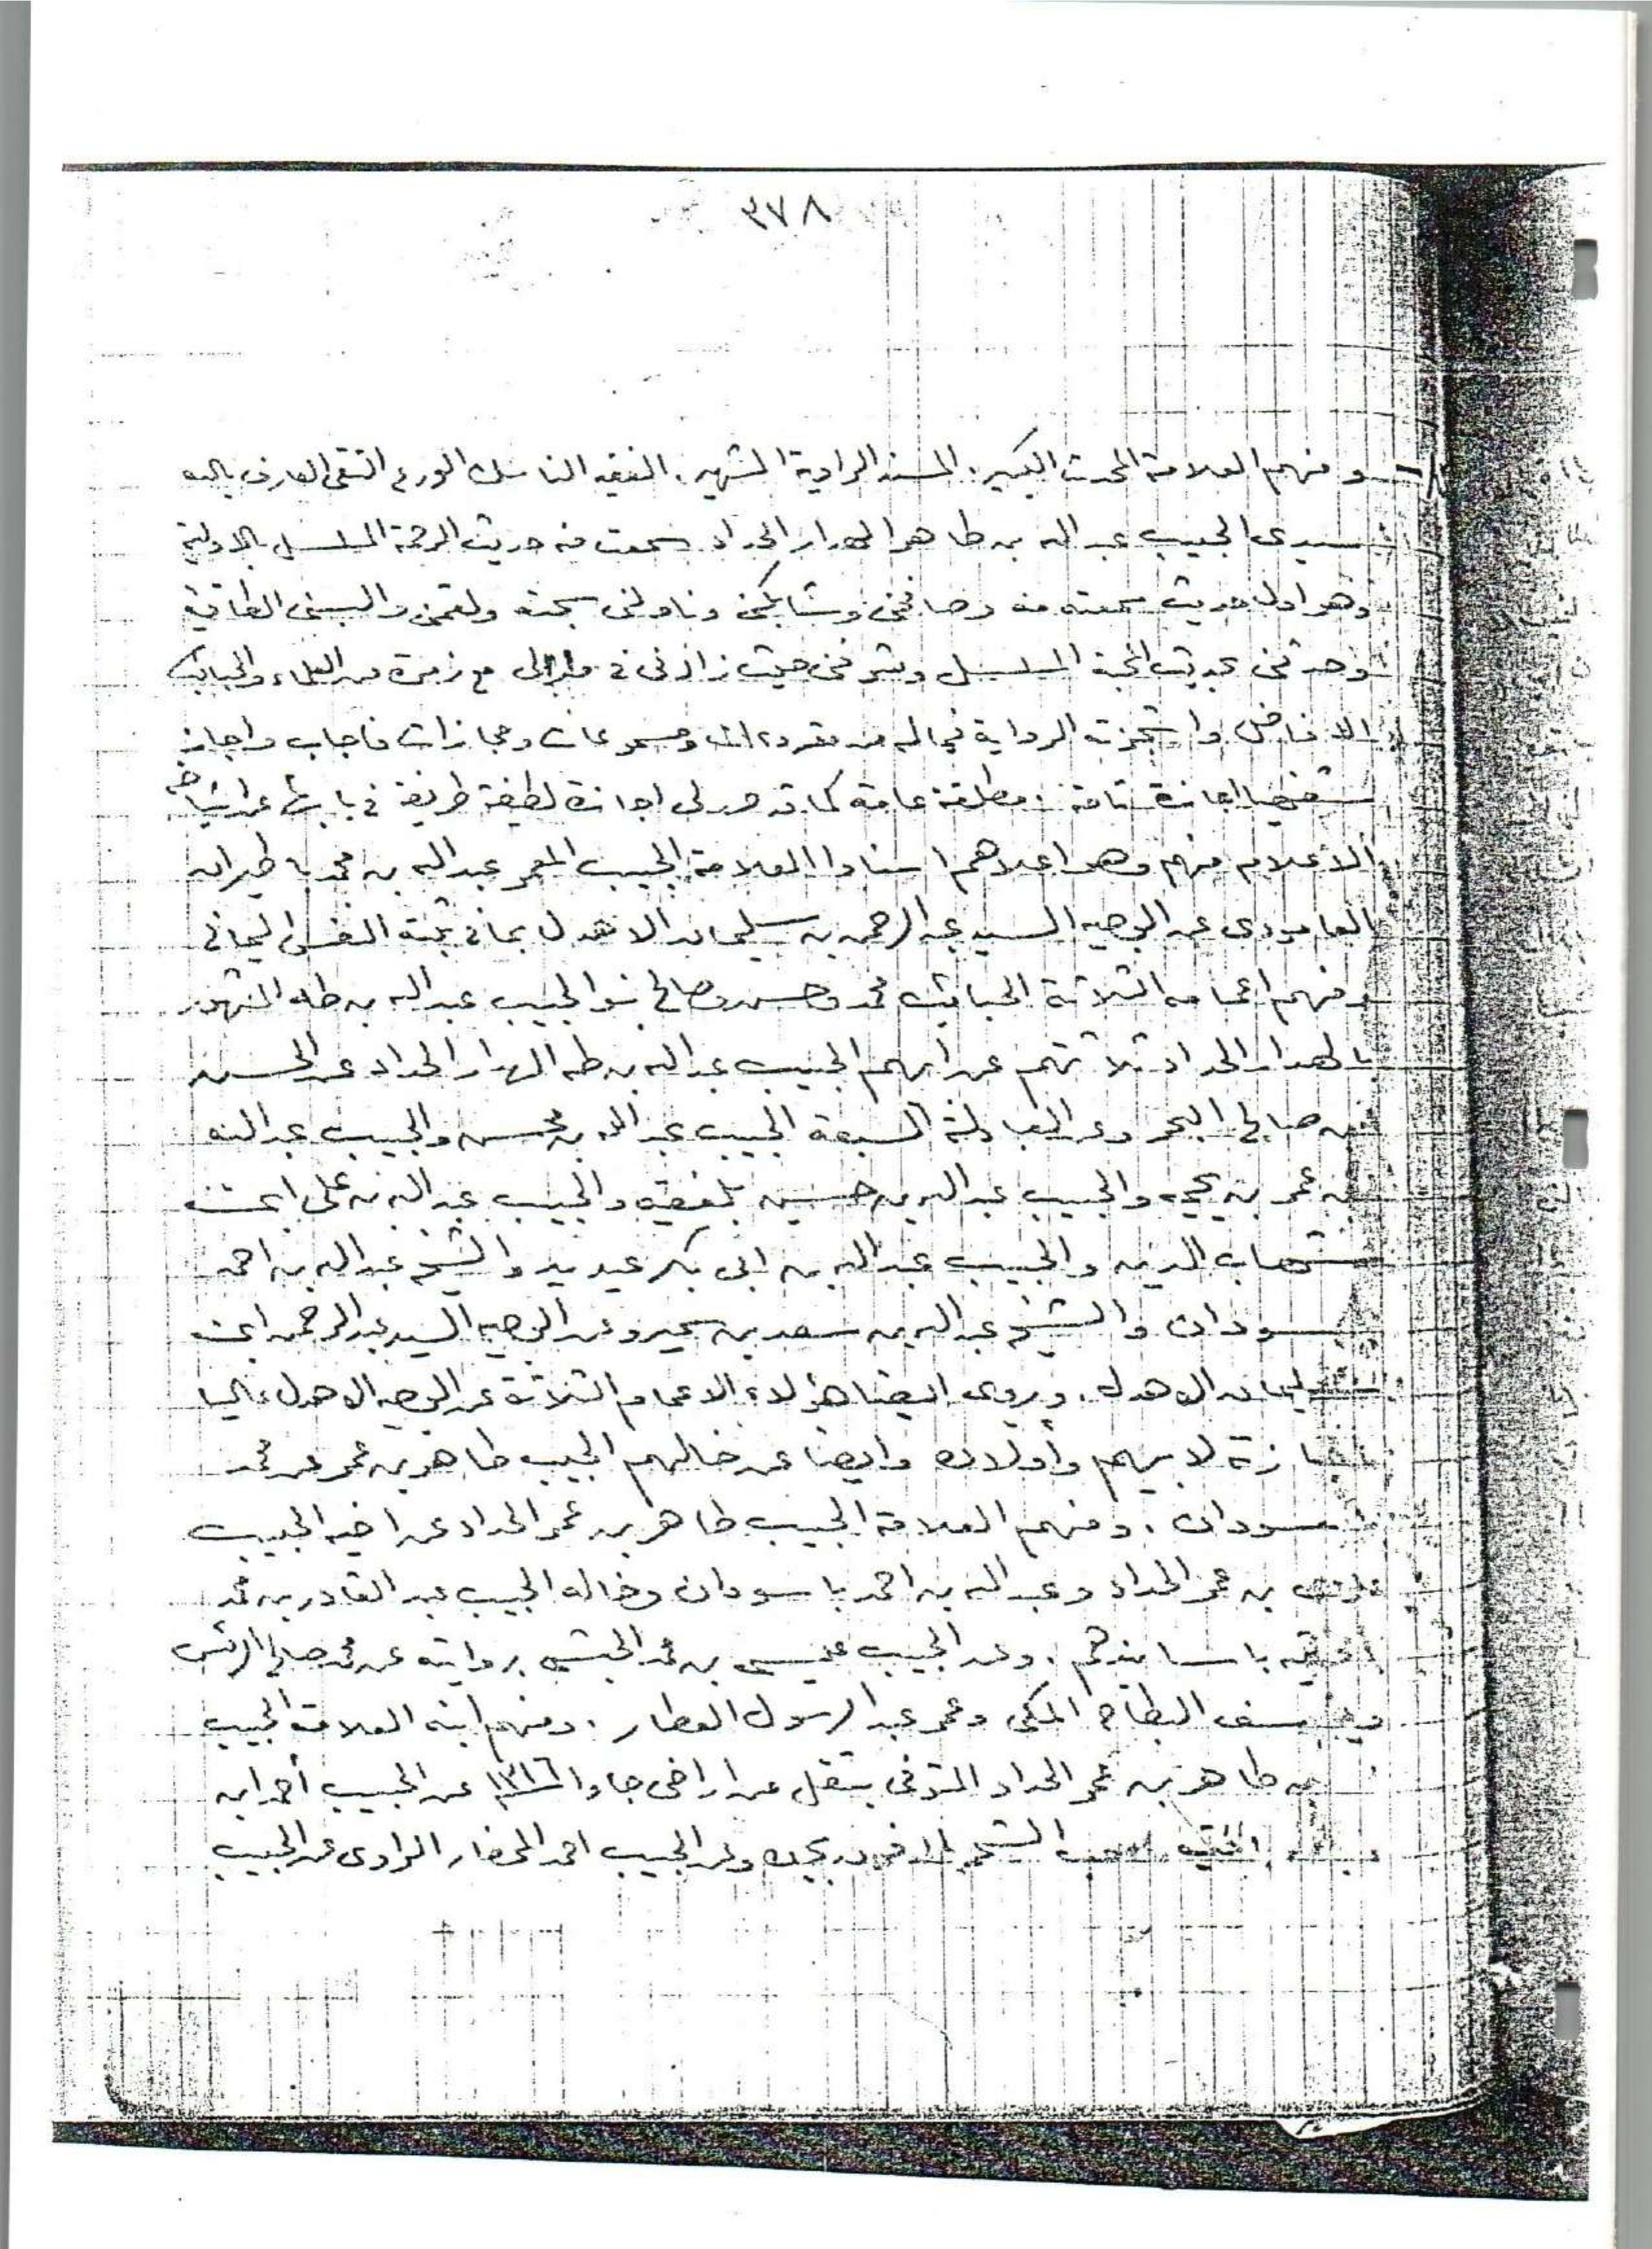 ٣٧٨
ومنهم العلامة المحدث الكبير. المسند الراوية الشهير. الفقيه الناسك الورع التقي العارف بالله
سيدى الحبيب عبد الله بن طاهر الهدار الحداد سمعت منه حديث الرحمة المسلسل بالاولية
وهو اول حديث سمعته منه وصافحنى وشابكنى وناولنى سبحته ولقمنى والبسنى الطاقية
وحدثنى بحديث المحبة المسلسل وشرفنى حيث زارنى فى منزلى مع زمرة من العلماء والحبايب
الافاضل واستجزته الرواية فيما له من مقروءات ومسموعات ومجازات فاجاب واجاز
شفهيا اجازة تامة مطلقة عامة كما قد حرر لى اجازة لطيفة ظريفة فى بابها عن اشياخه
الاعلام منهم وهو اعلاهم اسنادا العلامة الحبيب المعمر عبد الله بن محمد باطيران
العامودى عن الوجيه السيد عبد الرحمن بن سليمان الاهدل بما فى ثبته النفس اليمانى
ومنهم اعمامه الثلاثة الحبائب محمد وحسن وصالح بنو الحبيب عبد الله بن طه الشهور
بالهدار الحداد ثلاثتهم عن ابيهم الحبيب عبد الله بن طه الهدار الحداد عن الحسن
بن صالح البحر وعن العبادلة السبعة الحبيب عبد الله بن محسن والحبيب عبد الله
بن عمر بن يحيى والحبيب عبد الله بن حسين بلفقيه والحبيب عبد الله بن على ابن
شهاب الدين والحبيب عبد الله بن ابى بكر عيديد والشيخ عبد الله بن احمد
سودان والشيخ عبد الله بن سعد بن سمير وعن الوجيه السيد عبد الرحمن ابن
سليمان الاهدل. ويروى ايضا هؤلاء الاعمام الثلاثة عن الوجيه الاهدل عاليا
باجازة لابيهم وأولاده وايضا عن خالهم الحبيب طاهر بن عمر عن محمد
سودان. ومنهم العلامة الحبيب طاهر بن عمر الحداد عن اخيه الحبيب
بن عمر الحداد وعبد الله بن احمد باسودان وخاله الحبيب عبد القادر بن محمد
باسانيدهم. وعن الحبيب عيسى بن محمد الحبشى بروايته عن محمد صالح الريس
ويوسف البطاح المكى وعمر عبد الرسول العطار. ومنهم ابنه العلامة الحبيب
بن طاهر بن عمر الحداد المتوفى بتقل من اراضى جاوا ١٣١٦ عن الحبيب أحمد ابن
وعن الحبيب احمد المحضار الراوى عن الحبيب